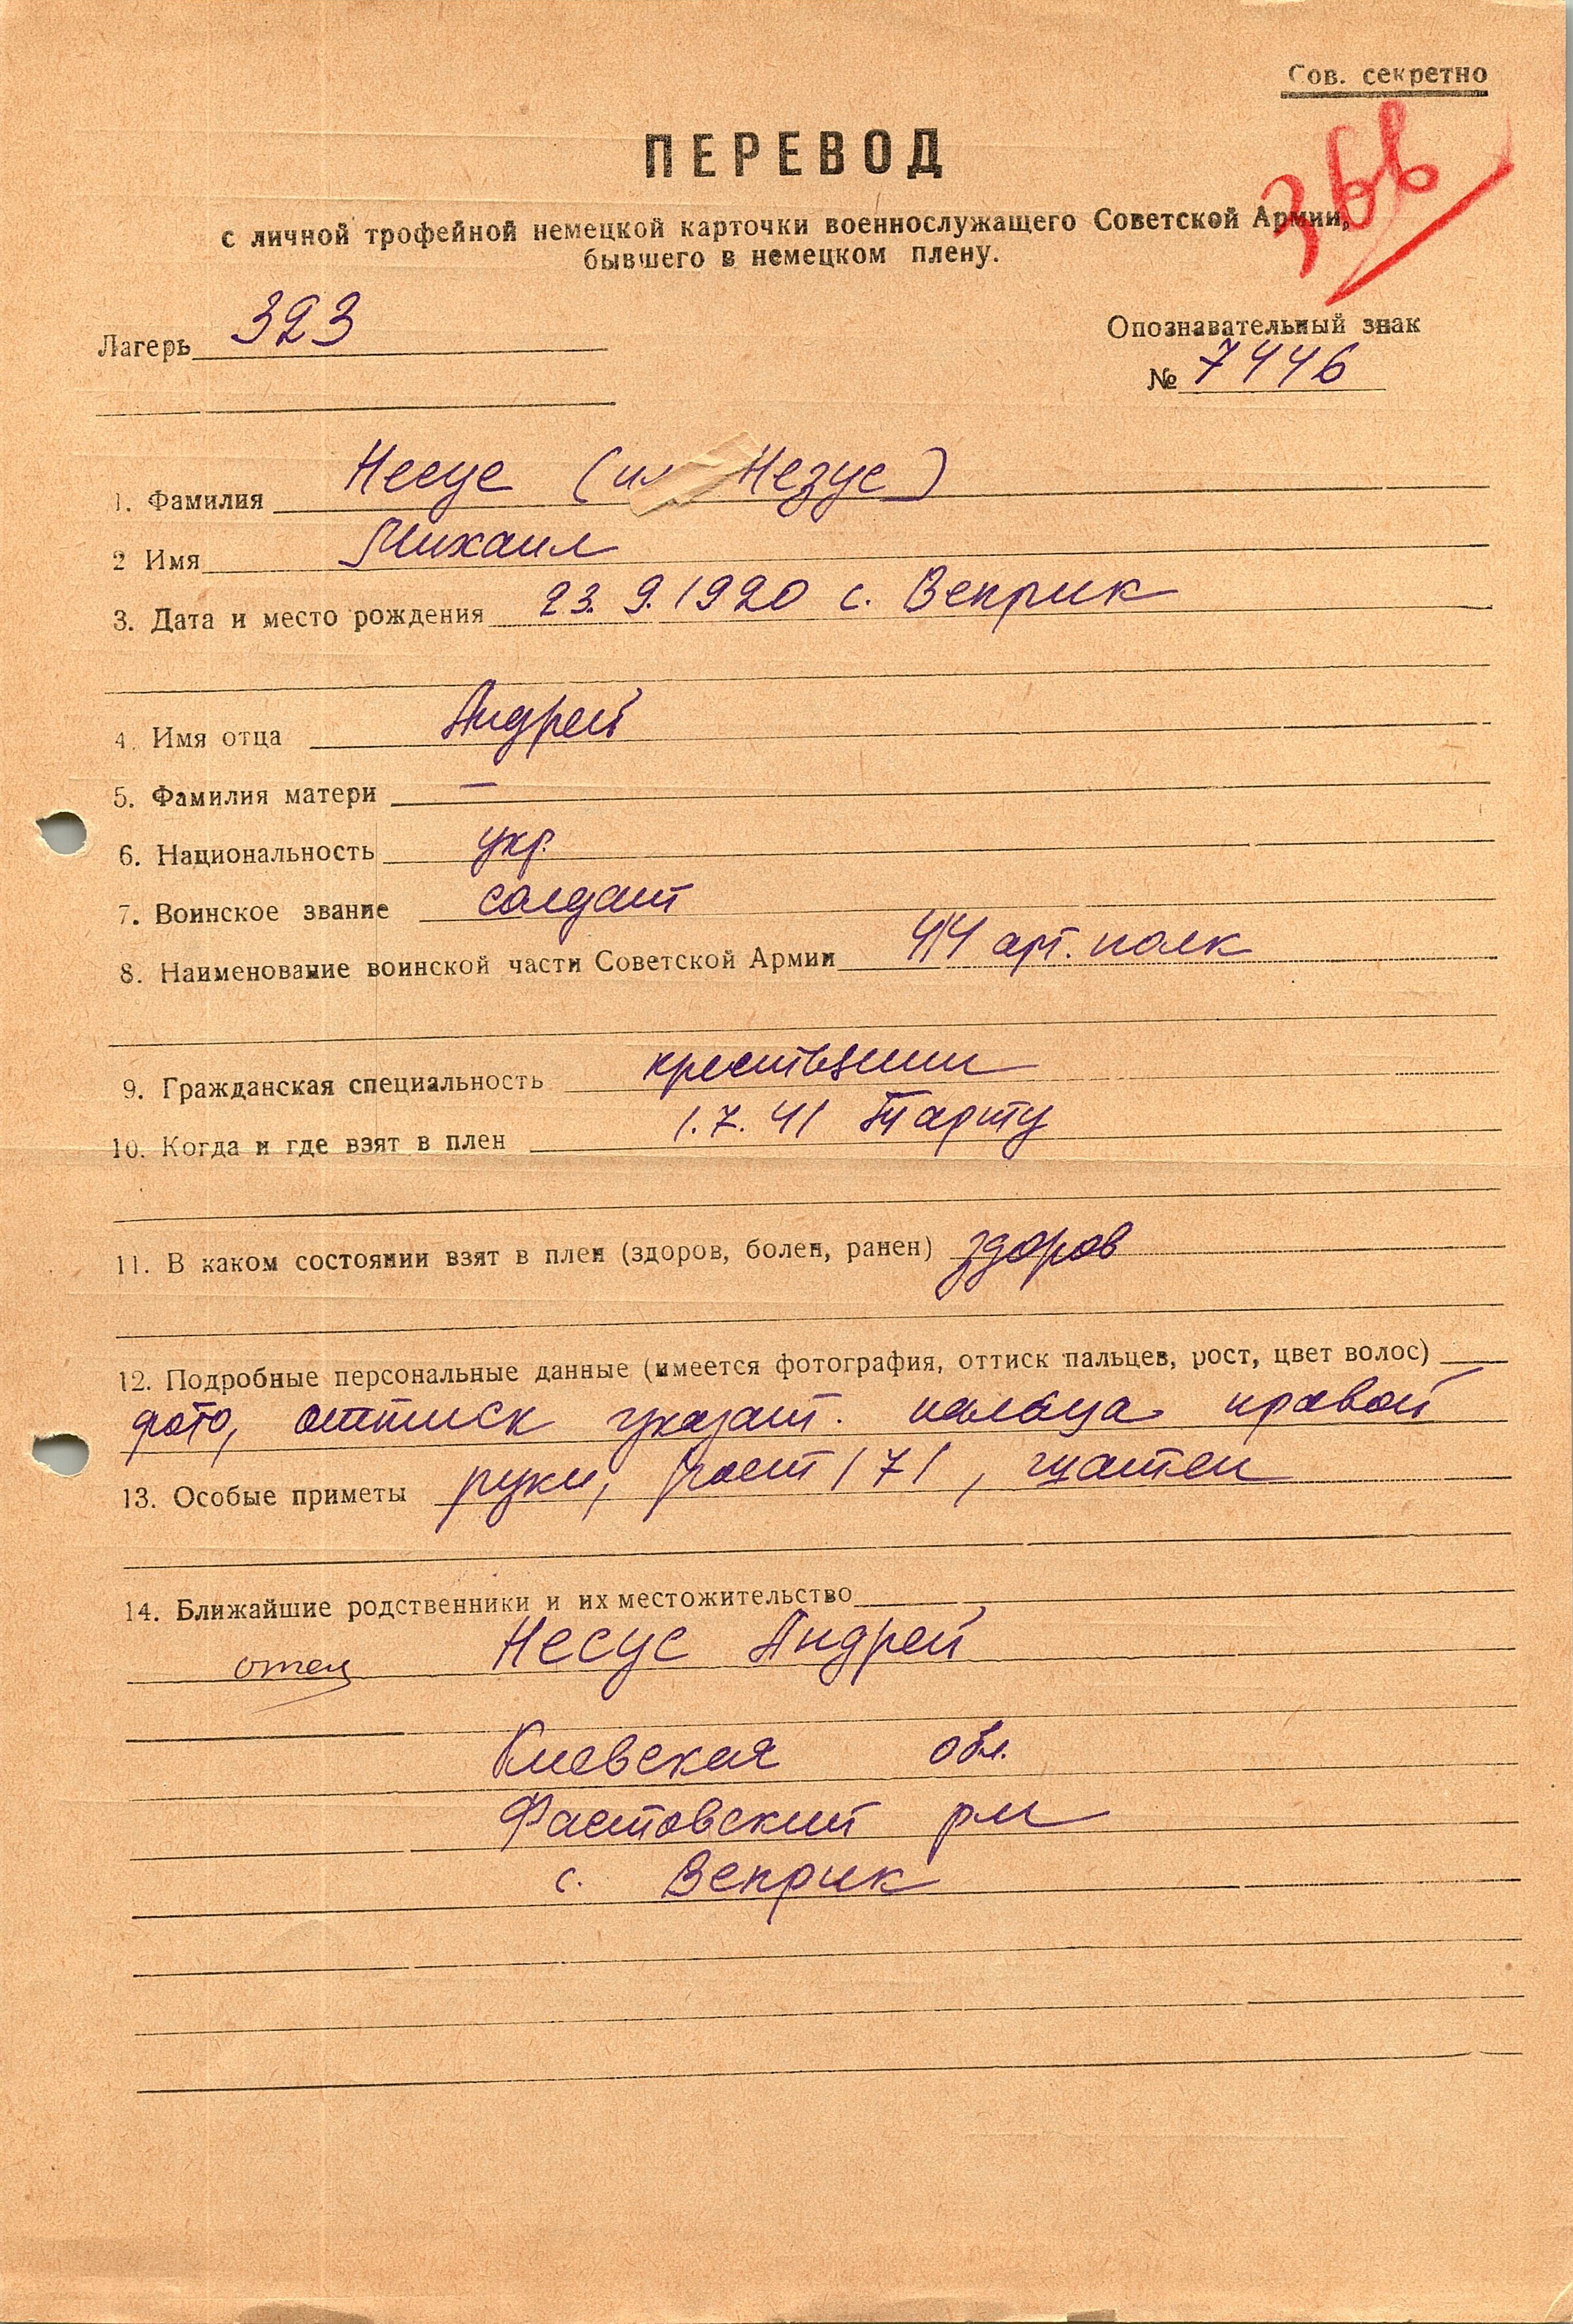 Сов. секретно
ПЕРЕВОД
с личной трофейной немецкой карточки военнослужащего Советской Армии,
бывшего в немецком плену.
Лагерь 323
Опознавательный знак
№ 7446
1. Фамилия Несус (или Незус)
2 Имя Михаил
3. Дата и место рождения 23.9.1920 с. Веприк
4. Имя отца Андрей
5. Фамилия матери —
6. Национальность укр.
7. Воинское звание солдат
8. Наименование воинской части Советской Армии 414 арт. полк
9. Гражданская специальность крестьянин
10. Когда и где взят в плен 1.7.41 Тарту
11. В каком состоянии взят в плен (здоров, болен, ранен) здоров
12. Подробные персональные данные (имеется фотография, оттиск пальцев, рост, цвет волос)
фото, оттиск указат. пальца правой
13. Особые приметы руки, рост 171, шатен
14. Ближайшие родственники и их местожительство
отец Несус Андрей
Киевская обл.
Фастовский рн
с. Веприк